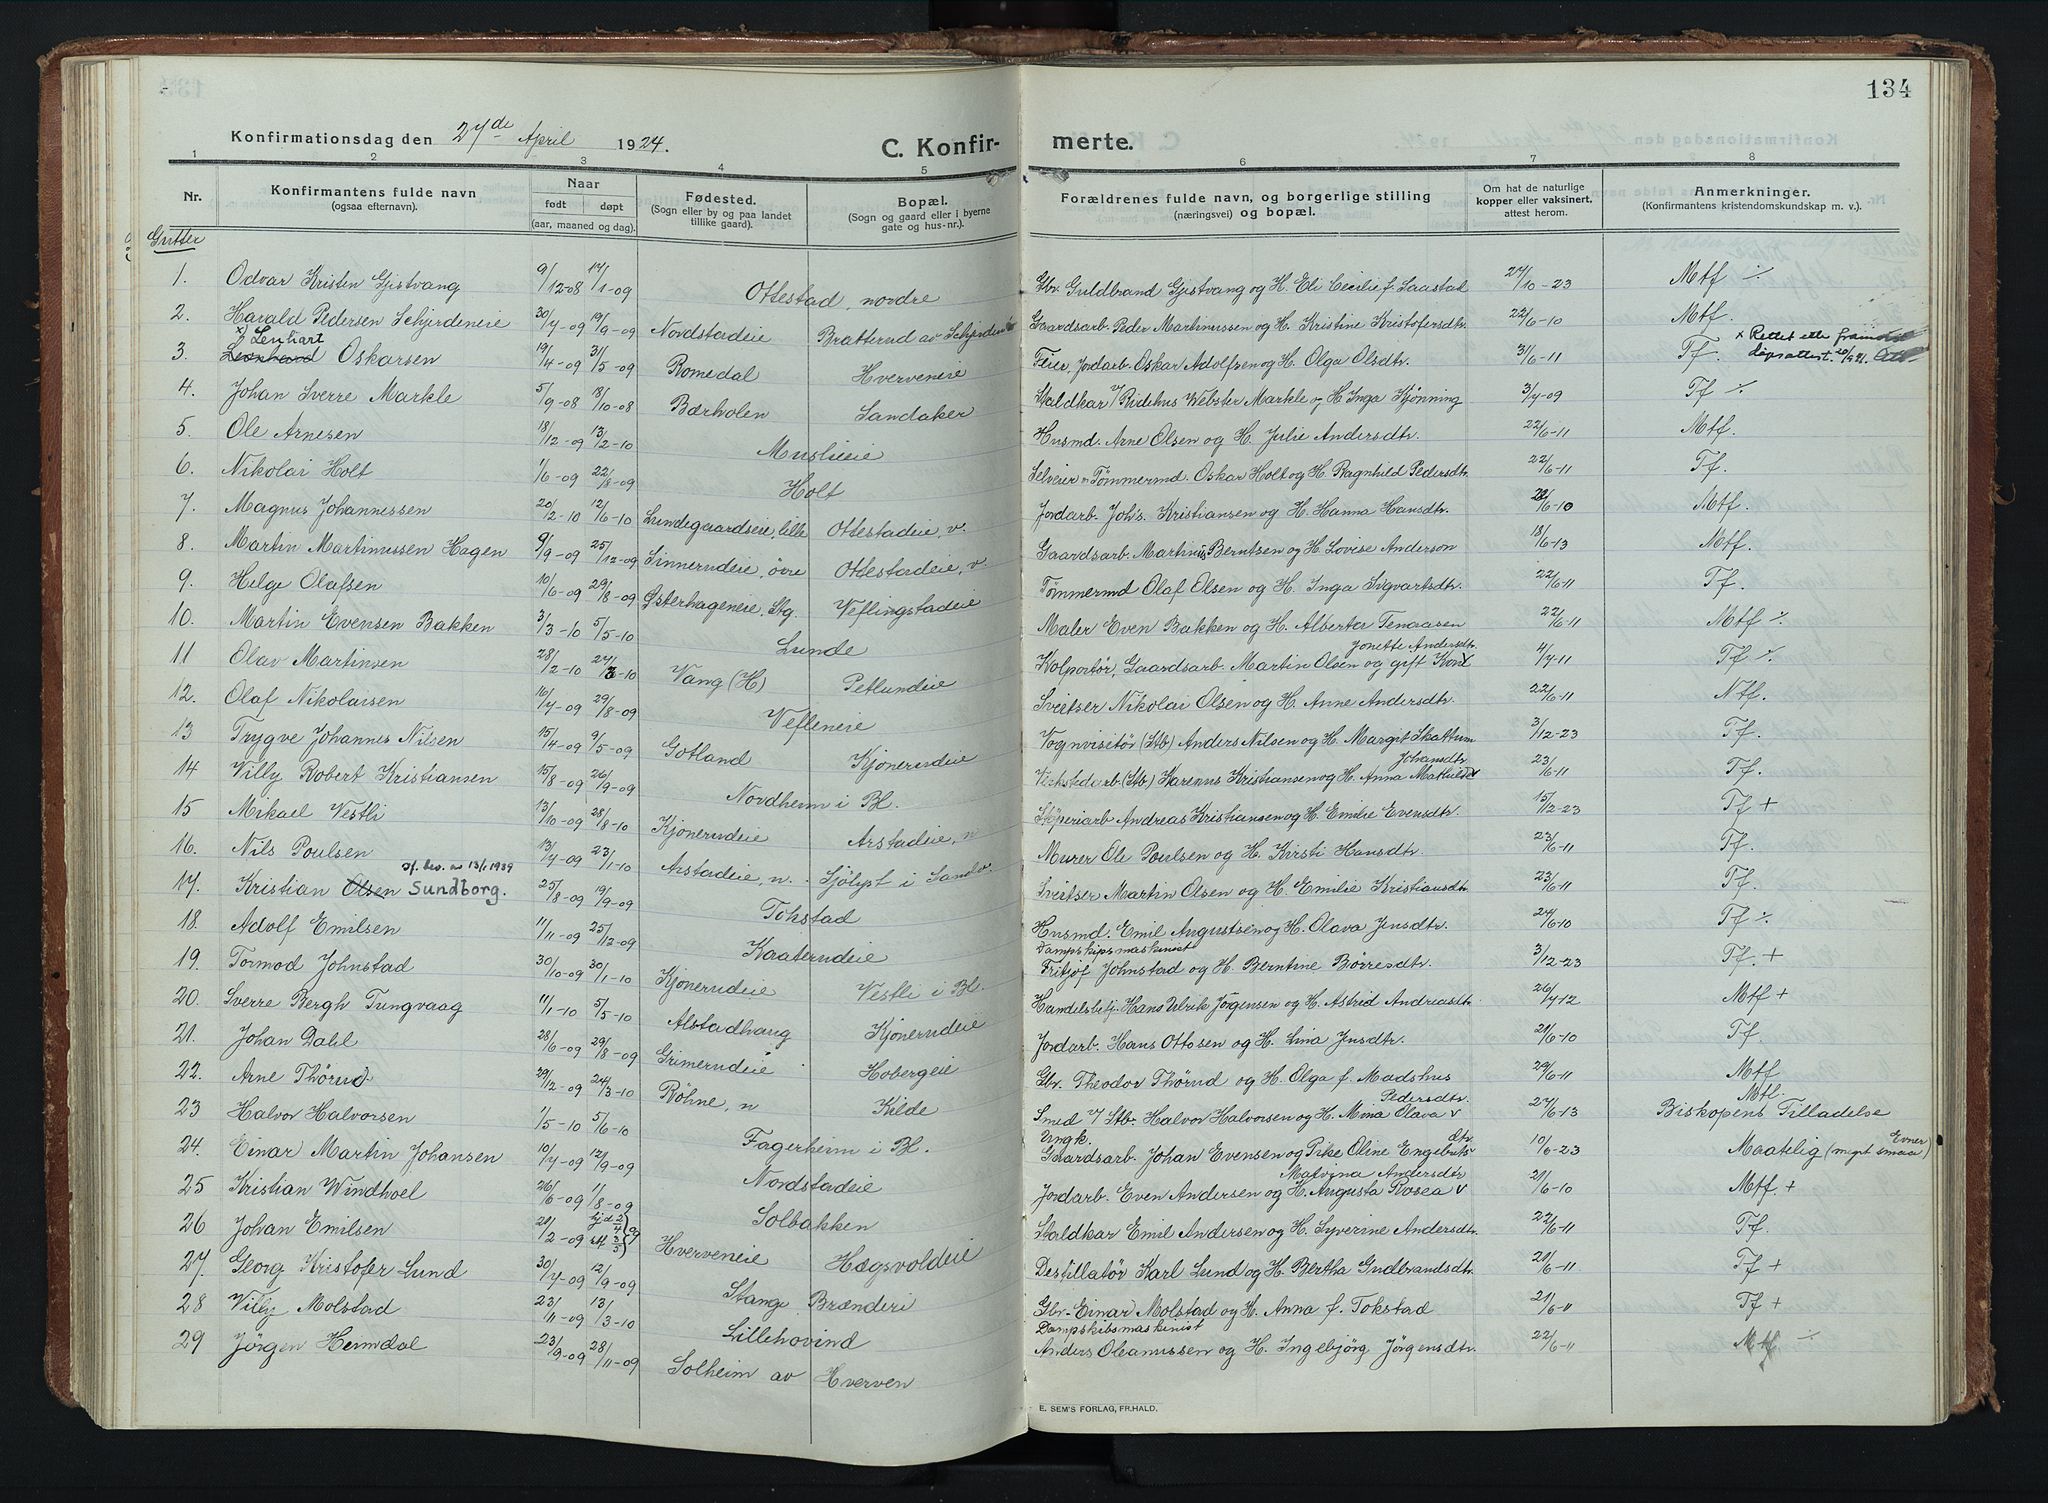 134
Konfirmationsdag den 27de April 1924.
C. Konfirmerte.
1 2 3 4 5 6 7 8
Nr. Konfirmantens fulde navn (ogsaa efternavn). Naar født døpt (aar, maaned og dag). Fødested. (Sogn eller by og paa landet tillike gaard). Bopæl. (Sogn og gaard eller i byerne gate og hus-nr.). Forældrenes fulde navn, og borgerlige stilling (næringsvei) og bopæl. Om hat de naturlige kopper eller vaksinert, attest herom. Anmerkninger. (Konfirmantens kristendomskundskap m. v.).
Gutter
1. Odvar Kristen Gjistvang 9/12-08 17/1-09 Ottestad, nordre Gbr. Guldbrand Gjistvang og H. Eli Cecilie f. Saastad 27/10-23 Mtf ./.
2. Harald Pedersen Schjerdeneie 30/7-09 19/9-09 Nordstadeie Bratterud av Gaardsarb. Peder Martinussen og H. Kristine Kristofersdtr. 22/6-10 Mtf.
3. x) Lenhart Leonhard Oskarsen 19/4-09 31/5-09 Romedal Hverveneie Feier, Jordarb. Oskar Adolfsen og H. Olga Olsdtr. 3/6-11 Tf. x Rettet etter
4. Johan Sverre Markle 5/9-08 18/10-08 Bærholen Sandaker Staldkar v/ Ridehus Webster Markle og H. Inga Hjønning 3/7-09 Tf ./.
5. Ole Arnesen 18/12-09 13/2-10 Muslieie Husmd. Arne Olsen og H. Julie Andersdtr. 22/6-11 Mtf.
6. Nikolai Holt 1/6-09 22/8-09 Holt Selveier Tømmermd. Oskar Holt og H. Ragnhild Pedersdtr. 22/6-11 Tf.
7. Magnus Johannessen 20/2-10 12/6-10 Lundegaardseie, lille Ottestadeie, v. Jordarb. Johs. Kristiansen og H. Hanna Hansdtr. 22/6-10 Mtf.
8. Martin Martinussen Hagen 9/9-09 25/12-09 Sinnerudeie, övre Ottestadeie, v. Gaardsarb. Martinus Berntsen og H. Lovise Anderson 18/6-13 Mtf.
9. Helge Olafsen 10/6-09 29/8-09 Østerhageneie, Stg Veflingstadeie Tømmermd Olaf Olsen og H. Inga Sigvartsdtr. 22/6-11 Tf.
10. Martin Evensen Bakken 3/3-10 5/5-10 Lunde Maler Even Bakken og H. Alberta Tenaasen 22/6-11 Mtf ./.
11 Olav Martinsen 28/2-10 Vang (H) Petlundeie Kolportör, Gaardsarb. Martin Olsen og gift Kone Jonette Andersdtr. 4/7-11 Tf ./.
12. Olaf Nikolaisen 16/7-09 29/8-09 Vefleneie Sveitser Nikolai Olsen og H. Anne Andersdtr. 22/6-11 Ntf.
13 Trygve Johannes Nilsen 15/4-09 9/5-09 Gotland Kjönerudeie Vognvisitör (Stb) Anders Nilsen og H. Margit Skattum 3/12-23 Tf.
14 Villy Robert Kristiansen 15/8-09 26/9-09 Nordheim i Bl. Verkstedarb (Stb) Karenus Kristiansen og H. Anna Mathilde Johansdtr 23/6-11 Tf.
15 Mikael Vestli 13/10-09 28/8-10 Kjönerudeie Arstadeie, n Støperiarb Andreas Kristiansen og H. Emilie Evensdtr. 15/12-23 Tf +
16. Nils Poulsen 13/7-09 23/1-10 Arstadeie, n. Sjölyst i Sandv. Murer Ole Poulsen og H. Kirsti Hansdtr. 23/6-11 Tf.
17. Kristian Olsen Sundborg. Jf. bev. av 13/1 1939 25/8-09 19/9-09 Tokstad Sveitser Martin Olsen og H. Emilie Kristiansdtr 23/6-11 Tf.
18. Adolf Emilsen 11/11-09 25/12-09 Kaaterudeie Husmd. Emil Augustsen og H. Olava Jensdtr. 24/6-10 Tf ./.
19. Tormod Johnstad 30/10-09 30/1-10 Kjönerudeie Vestli i Bl. Dampskipsmaskinist Fritjof Johnstad og H. Berntine Börresdtr. 3/12-23 Tf. +
20. Sverre Bergh Tungvaag 11/1-10 5/5-10 Alstadhaug Kjönerudeie Handelsbetj. Hans Ulrik Jörgensen og H. Astrid Andreasdtr. 26/7-12 Mtf +
21. Johan Dahl 28/6-09 29/8-09 Grimerudeie Hobergeie Jordarb. Hans Ottosen og H. Lina Jensdtr. 21/6-10 Tf.
22. Arne Thörud 29/12-09 24/3-10 Röhne, n Kilde Gbr. Theodor Thörud og H. Olga f. Madshus 29/6-11 Mtf
23 Halvor Halvorsen 1/5-10 5/6-10 Fagerheim i Bl. Smed v/ Stb. Halvor Halvorsen og H. Mina Olava Pedersdtr. 27/6-13 Mtf. Biskopens Tilladelse
24. Einar Martin Johansen 10/7-09 12/9-09 Nordstadeie Ungk. Gaardsarb. Johan Evensen og Pike Oline Engebretsdtr. 10/6-23 Maatelig (meget smaa Evner)
25 Kristian Windhoel 26/6-09 1/8-09 Solbakken Jordarb. Even Andersen og H. Augusta Rosea Malvina Andersdtr 21/6-10 Mtf. +
26 Johan Emilsen 21/2-09 Hverveneie Hægsvoldeie Staldkar Emil Andersen og H. Syverine Andersdtr. 22/6-11 Tf.
27. Georg Kristofer Lund 30/7-09 12/9-09 Stange Brænderi Destillatør Karl Lund og H. Bertha Gudbrandsdtr. 21/6-11 Tf +
28 Villy Molstad 23/11-09 13/3-10 Lillehovind Gbr. Einar Molstad og H. Anna f. Tokstad 21/6-11 Tf +
29 Jörgen Hemdal 23/9-09 28/11-09 Solheim av Hverven Dampskibsmaskinist Anders Oleanussen og H. Ingebjörg Jörgensdtr. 22/6-11 Mtf ./.
E. SEM'S FORLAG, FR.HALD.